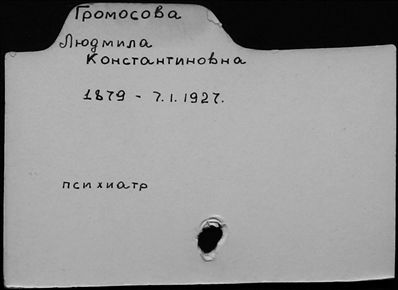 Громосова
Людмила
Константиновна
1879 - 7.1.1927.
психиатр